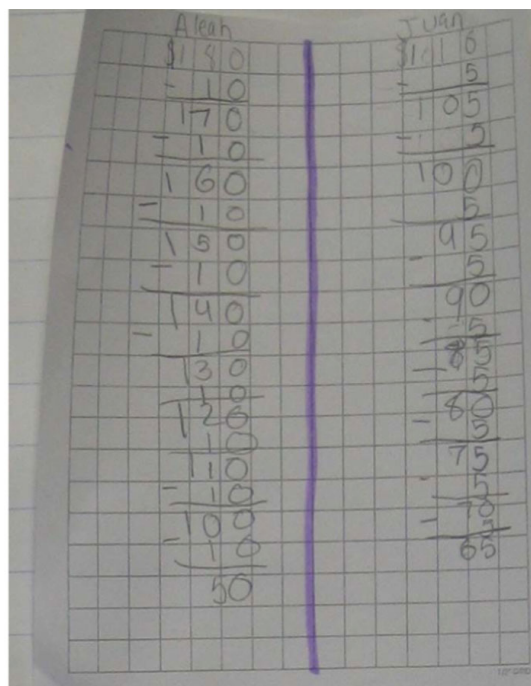 Aleah
$180
- 10
170
- 10
160
- 10
150
- 10
140
- 10
130
10
120
10
110
- 10
100
- 10
50
Juan
$110
- 5
105
- 5
100
5
95
- 5
90
- 5
85
- 5
80
- 5
75
- 5
70
- 5
65